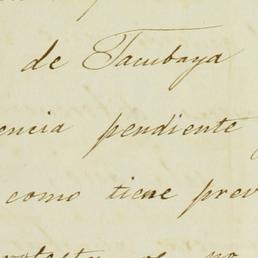 de Tacubaya
encia pendiente
como tiene prev
no